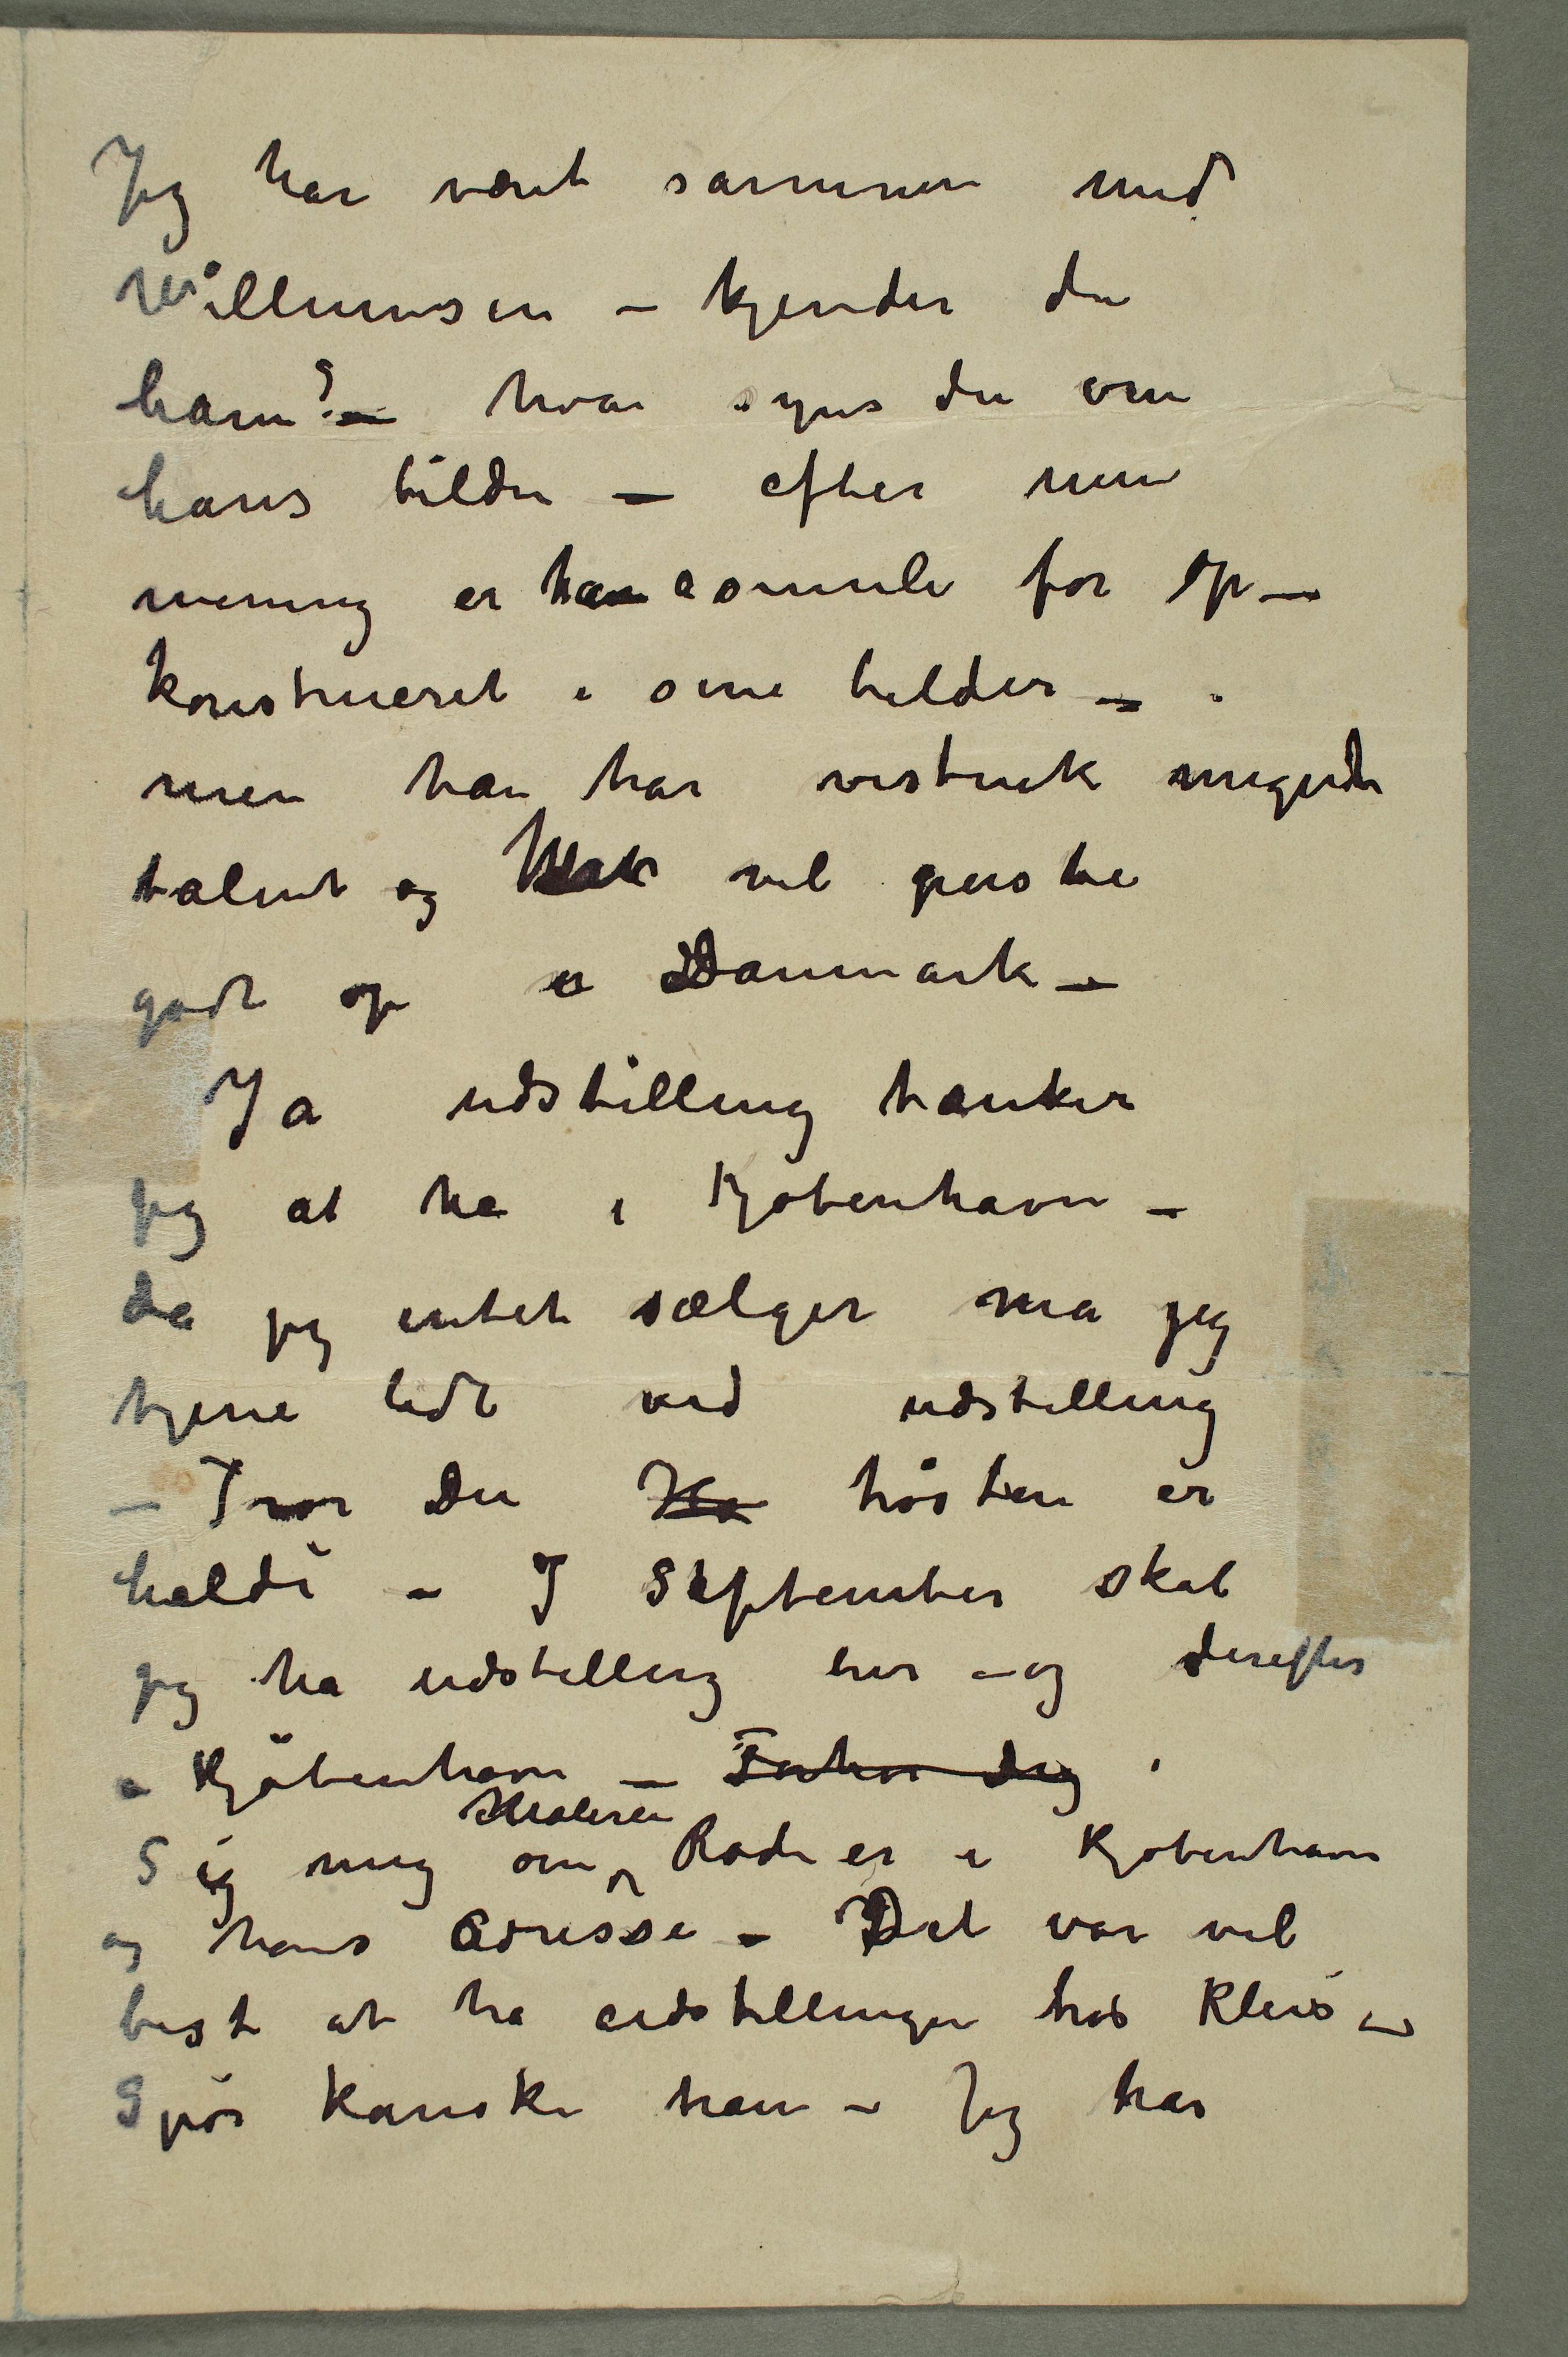 Jeg har været sammen med
Willumsen – kjender du
ham? – hvor synes du om
hans billder – efter min
mening er han somme for op–
konstrueret i sine bilder –
men han har vistnok meget
talent og vil friske
godt op i Danmark –
Ja udstilling tænker
jeg at ha i Kjøbenhavn –
da jeg intet sælger må jeg
tjene lidt ved udstilling
– Tror Du Ha høsten er
heldi – I September skal
jeg ha udstilling her – og derefter
i Kjøbenhavn – Forhør dig
Sig mig om Maleren Rode er i Kjøbenhavn
og hans adresse – Det var vel
best at ha udstillingen hos Kleis –
Spør kanske ham – Jeg har